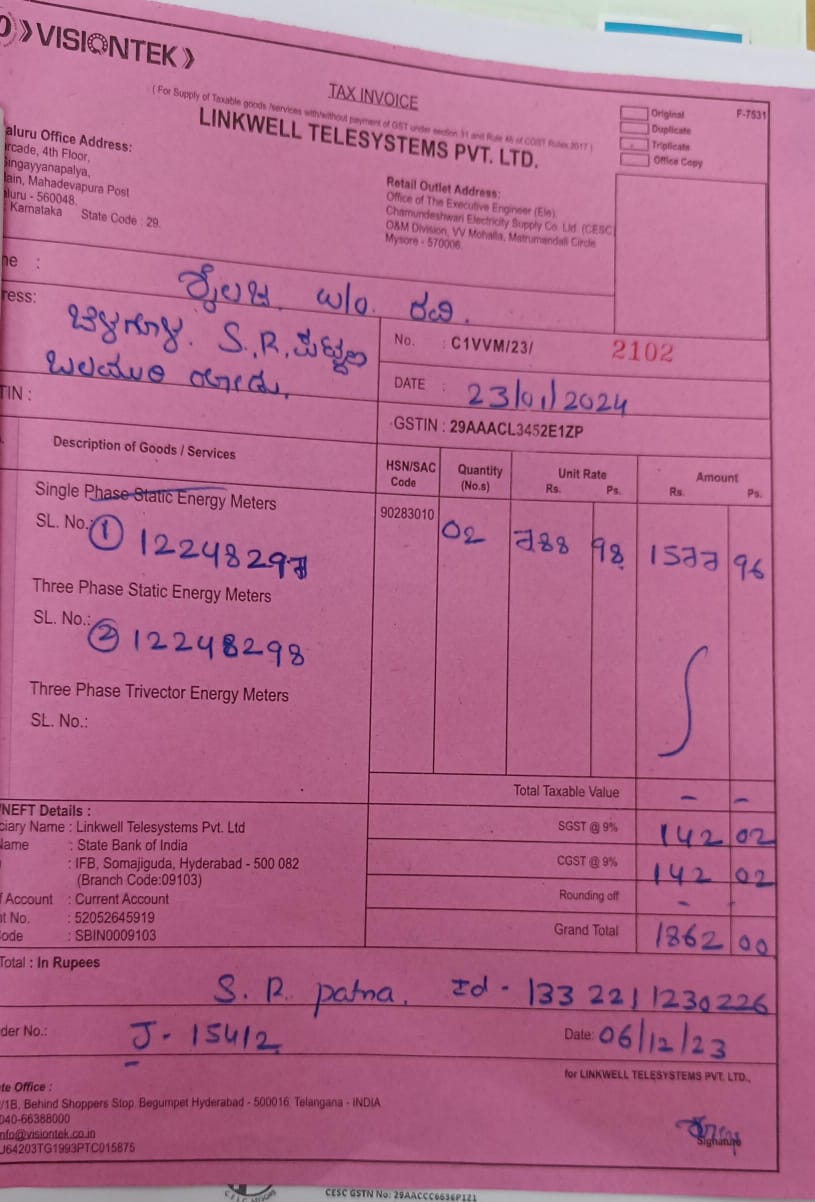 VISIONTEK
TAX INVOICE
( For Supply of Taxable goods /services with/without payment of GST under section 31 and Rule 46 of CGST Rules 2017 )
LINKWELL TELESYSTEMS PVT. LTD.
Original
F-7531
Duplicate
Triplicate
Office Copy
aluru Office Address:
rcade, 4th Floor,
Singayyanapalya,
lain, Mahadevapura Post
aluru - 560048.
: Karnataka State Code : 29.
Retail Outlet Address:
Office of The Executive Engineer (Ele)
Chamundeshwari Electricity Supply Co. Ltd. (CESC)
O&M Division, VV Mohalla, Matrumandali Circle
Mysore - 570006.
ne :
ಶೈಲಜ. w/o. ರವಿ.
ress:
S.R.
No. : C1VVM/23/ 2102
DATE : 23/01/2024
TIN :
GSTIN : 29AAACL3452E1ZP
Description of Goods / Services
HSN/SAC Code
Quantity (No.s)
Unit Rate
Rs. Ps.
Amount
Rs. Ps.
Single Phase Static Energy Meters
90283010 02 788 98 1577 96
SL. No.: ① 12248297
Three Phase Static Energy Meters
SL. No.: ② 12248298
Three Phase Trivector Energy Meters
SL. No.:
Total Taxable Value - -
/NEFT Details :
ciary Name : Linkwell Telesystems Pvt. Ltd
SGST @ 9% 142 02
Name : State Bank of India
: IFB, Somajiguda, Hyderabad - 500 082
CGST @ 9% 142 02
(Branch Code:09103)
f Account : Current Account
Rounding off - -
nt No. : 52052645919
ode : SBIN0009103
Grand Total 1862 00
Total : In Rupees
S. R. patna. Id - 133 2211230226
der No.: J - 15412
Date: 06/12/23
for LINKWELL TELESYSTEMS PVT. LTD.,
te Office :
/1B, Behind Shoppers Stop, Begumpet Hyderabad - 500016. Telangana - INDIA
040-66388000
nfo@visiontek.co.in
U64203TG1993PTC015875
Signature
CESC GSTN No: 29AACCC6636P1Z1